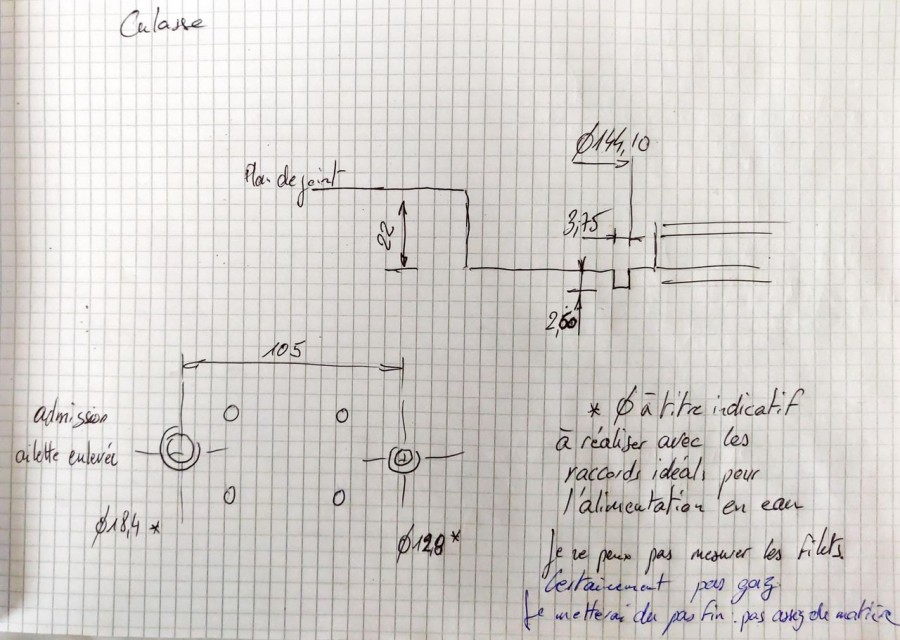 Culasse
Ø144,10
Plan de joint
3,75
22
2,60
105
admission
ailette enlevée
Ø18,4 *
Ø12,8 *
* Ø à titre indicatif
à réaliser avec les
raccords idéals pour
l'alimentation en eau
Je ne peux pas mesurer les filets.
Certainement pas gaz
Je metterai du pas fin. pas assez de matière